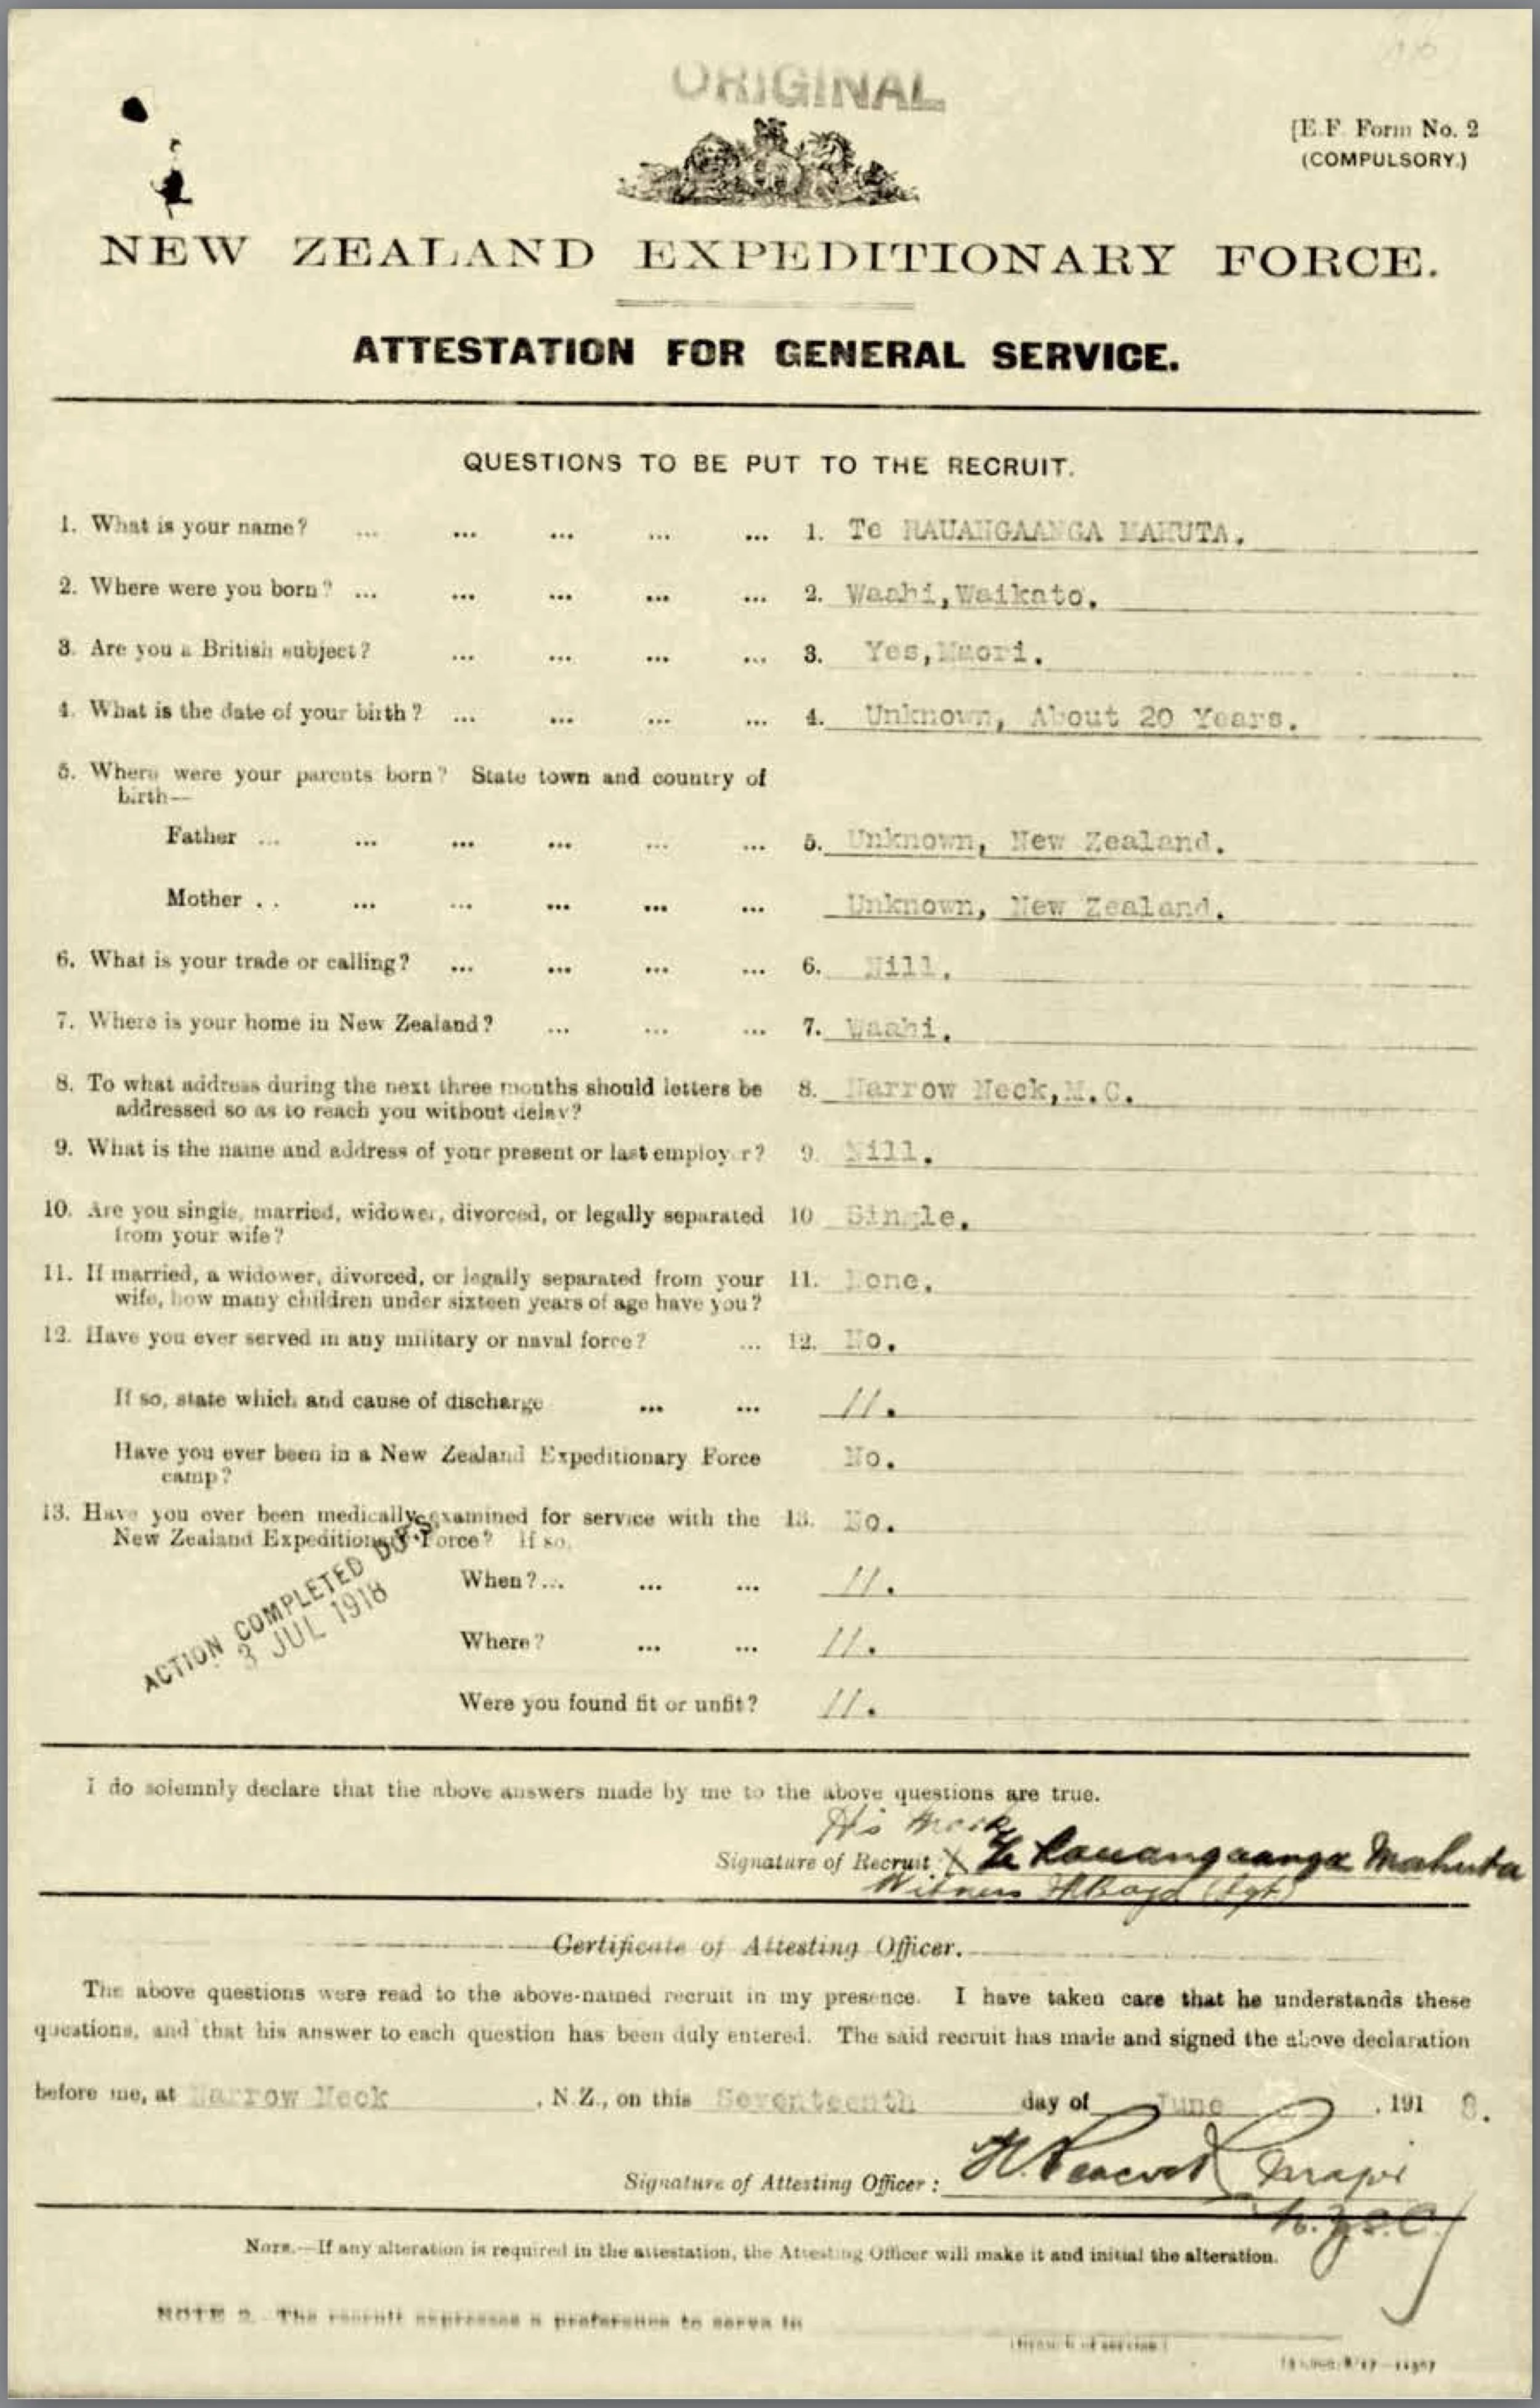 ORIGINAL
[E.F. Form No. 2
(COMPULSORY.)
NEW ZEALAND EXPEDITIONARY FORCE.
ATTESTATION FOR GENERAL SERVICE.
QUESTIONS TO BE PUT TO THE RECRUIT.
1. What is your name? ... ... ... ... ... 1. Te RAUANGAANGA MAHUTA.
2. Where were you born? ... ... ... ... ... 2. Waahi,Waikato.
3. Are you a British subject? ... ... ... ... 3. Yes,Maori.
4. What is the date of your birth? ... ... ... ... 4. Unknown, About 20 Years.
5. Where were your parents born? State town and country of
birth—
Father ... ... ... ... ... ... 5. Unknown, New Zealand.
Mother . . ... ... ... ... ... Unknown, New Zealand.
6. What is your trade or calling? ... ... ... ... 6. Nill.
7. Where is your home in New Zealand? ... ... ... 7. Waahi.
8. To what address during the next three months should letters be 8. Narrow Neck,M.C.
addressed so as to reach you without delay?
9. What is the name and address of your present or last employer? 9. Nill.
10. Are you single, married, widower, divorced, or legally separated 10 Single.
from your wife?
11. If married, a widower, divorced, or legally separated from your 11. None.
wife, how many children under sixteen years of age have you?
12. Have you ever served in any military or naval force? ... 12. No.
If so, state which and cause of discharge ... ... //.
Have you ever been in a New Zealand Expeditionary Force No.
camp?
13. Have you ever been medically examined for service with the 13. No.
New Zealand Expeditionary Force? If so,
When?... ... ... //.
Where? ... ... //.
Were you found fit or unfit? //.
ACTION COMPLETED
3 JUL 1918
I do solemnly declare that the above answers made by me to the above questions are true.
His mark
Signature of Recruit X Te Rauangaanga Mahuta
Witness (Sgt)
Certificate of Attesting Officer.
The above questions were read to the above-named recruit in my presence. I have taken care that he understands these
questions, and that his answer to each question has been duly entered. The said recruit has made and signed the above declaration
before me, at Narrow Neck , N.Z., on this Seventeenth day of June , 191 8.
Signature of Attesting Officer: Peacock Major
N.Z.S.C.
NOTE.—If any alteration is required in the attestation, the Attesting Officer will make it and initial the alteration.
NOTE 2. The recruit expresses a preference to serve in
(Branch of service)